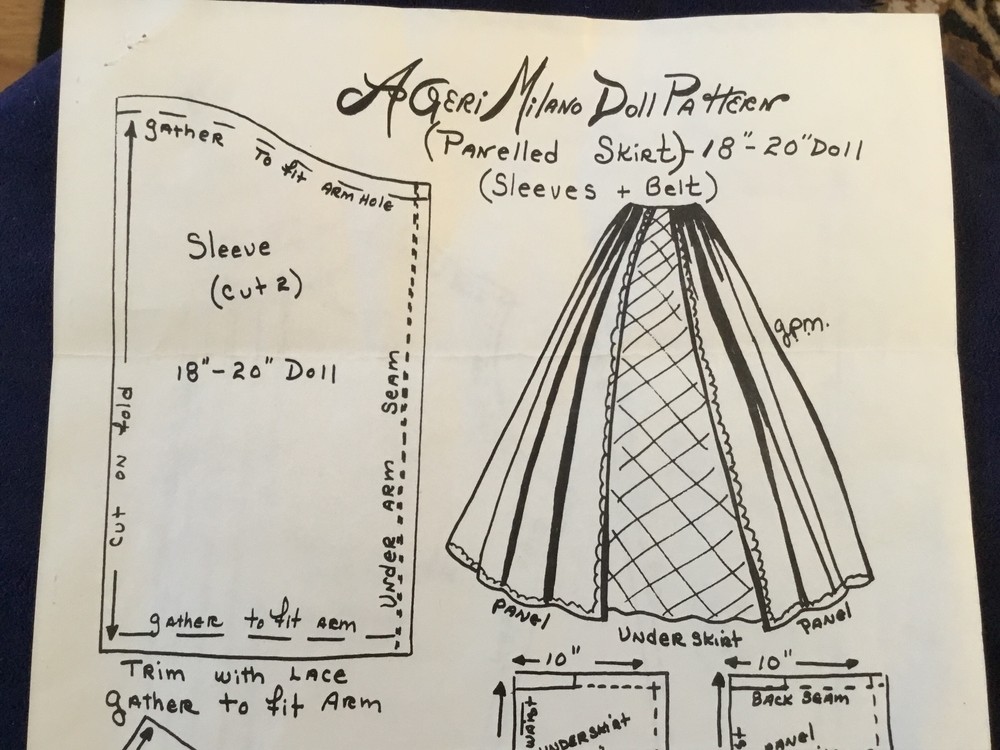 A Geri Milano Doll Pattern
(Panelled Skirt)-18"-20" Doll
(Sleeves + Belt)
gather to fit arm hole
Sleeve
(cut 2)
18"-20" Doll
cut on fold
Under arm seam
gather to fit arm
Trim with Lace
gather to fit Arm
g.p.m.
Panel
Underskirt
Panel
10"
10"
waist
Underskirt
Back Seam
Panel